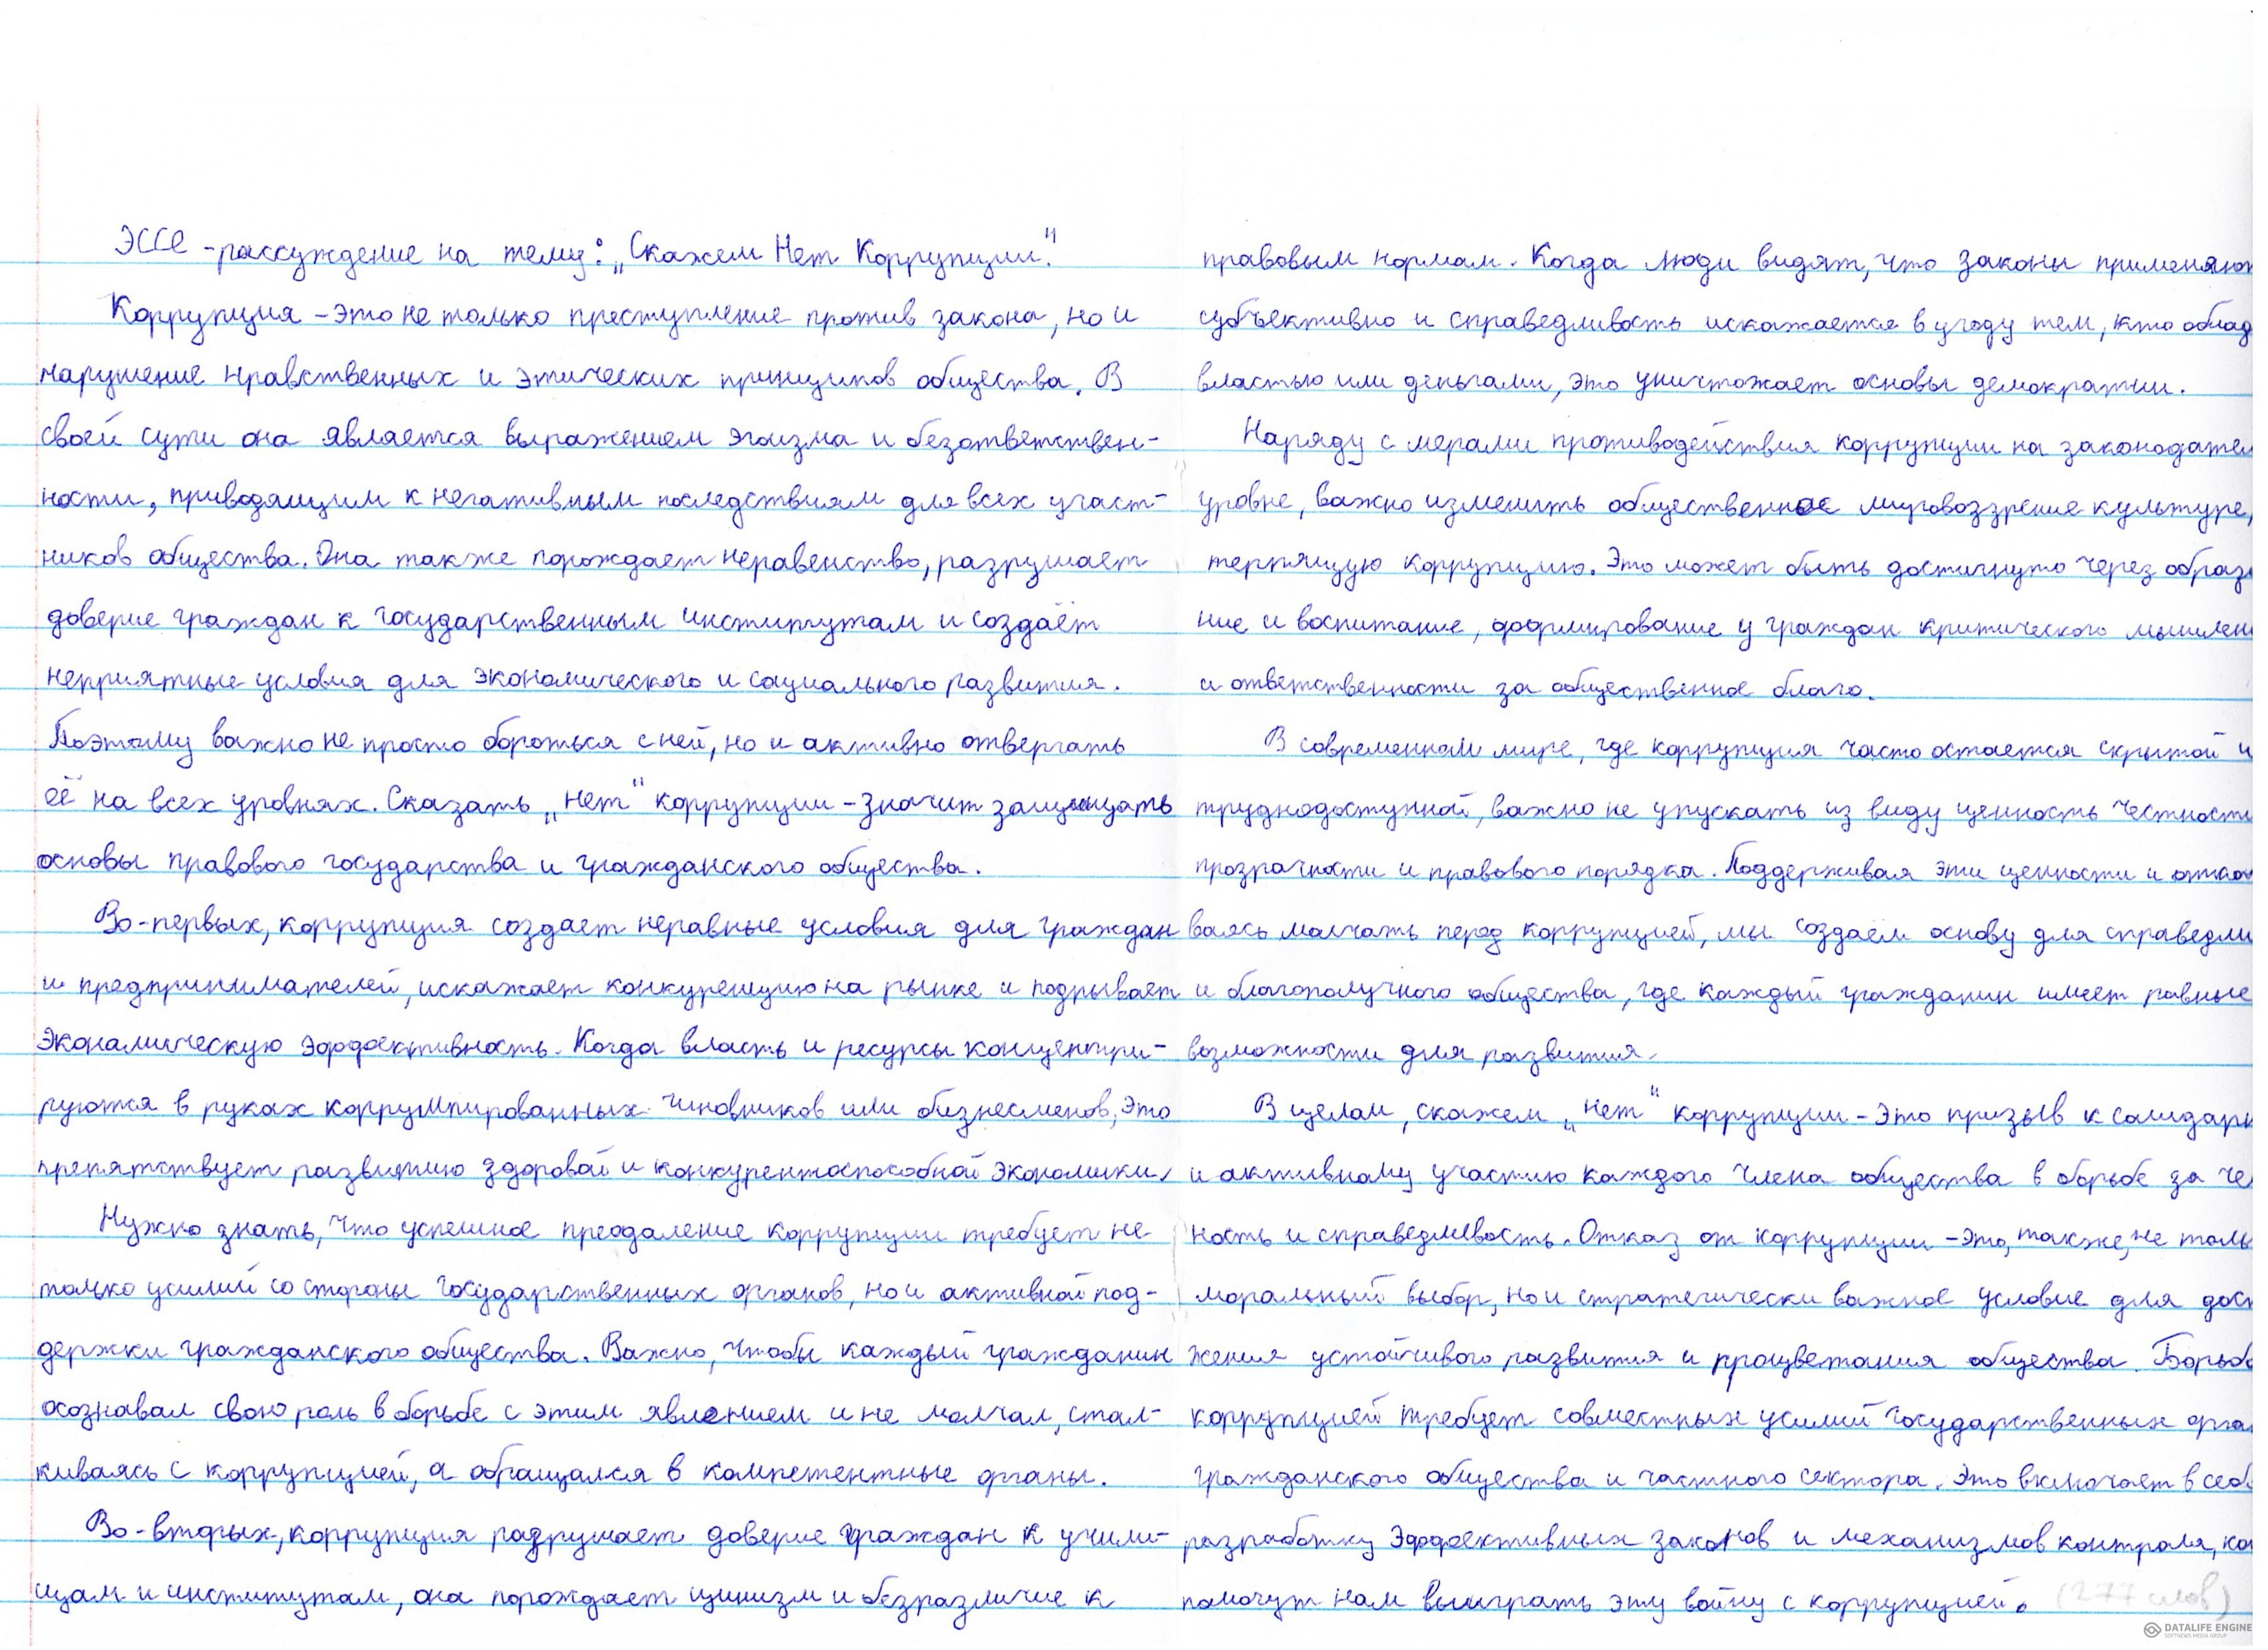 Эссе -рассуждение на тему: „Скажем Нет Коррупции".
Коррупция – это не только преступление против закона, но и
нарушение нравственных и этических принципов общества. В
своей сути она является выражением эгоизма и безответствен-
ности, приводящим к негативным последствиям для всех участ-
ников общества. Она также порождает неравенство, разрушает
доверие граждан к государственным институтам и создаёт
неприятные условия для экономического и социального развития.
Поэтому важно не просто бороться с ней, но и активно отвергать
её на всех уровнях. Сказать „нет" коррупции – значит защищать
основы правового государства и гражданского общества.
Во-первых, коррупция создает неравные условия для граждан
и предпринимателей, искажает конкуренцию на рынке и подрывает
экономическую эффективность. Когда власть и ресурсы концентри-
руются в руках коррумпированных чиновников или бизнесменов, это
препятствует развитию здоровой и конкурентоспособной экономики.
Нужно знать, что успешное преодаление коррупции требует не
только усилий со стороны государственных органов, но и активной под-
держки гражданского общества. Важно, чтобы каждый гражданин
осознавал свою роль в борьбе с этим явлением и не молчал, стал-
киваясь с коррупцией, а обращался в компетентные органы.
Во-вторых, коррупция разрушает доверие граждан к учили-
щам и институтам, она порождает цинизм и безразличие к
правовым нормам. Когда люди видят, что законы применяют
субъективно и справедливость искажается в угоду тем, кто облад
властью или деньгами, это уничтожает основы демократии.
Наряду с мерами противодействия коррупции на законодател
уровне, важно изменить общественное мировоззрение культуре,
терпящую коррупцию. Это может быть достигнуто через образо
ние и воспитание, формирование у граждан критического мышлен
и ответственности за общественное благо.
В современном мире, где коррупция часто остается скрытой и
труднодоступной, важно не упускать из виду ценность честности
прозрачности и правового порядка. Поддерживая эти ценности и отказ
ваясь молчать перед коррупцией, мы создаём основу для справедли
и благополучного общества, где каждый гражданин имеет равные
возможности для развития.
В целом, скажем „нет" коррупции – это призыв к солидарн
и активному участию каждого члена общества в борьбе за че
ность и справедливость. Отказ от коррупции – это, также, не толь
моральный выбор, но и стратегически важное условие для дост
жения устойчивого развития и процветания общества. Борьба
коррупцией требует совместных усилий государственных орга
гражданского общества и частного сектора. Это включает в себ
разработку эффективных законов и механизмов контроля, ко
помогут нам выиграть эту войну с коррупцией. (277 слов)
DATALIFE ENGINE
SOFTNEWS MEDIA GROUP